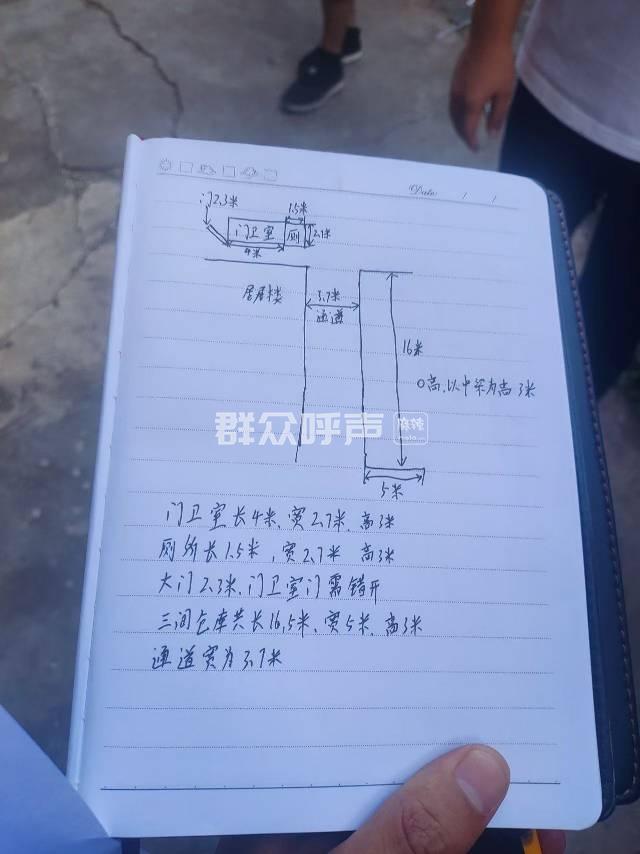 Date / /
门2.3米
1.5米
门卫室
厕
2.7米
4米
居居楼
3.7米
通道
16米
0高,以中梁为高3米
群众呼声
麻辣
5米
门卫室长4米、宽2.7米、高3米
厕所长1.5米,宽2.7米 高3米
大门2.3米、门卫室门需错开
三间仓库共长16.5米、宽5米、高3米
通道宽为3.7米